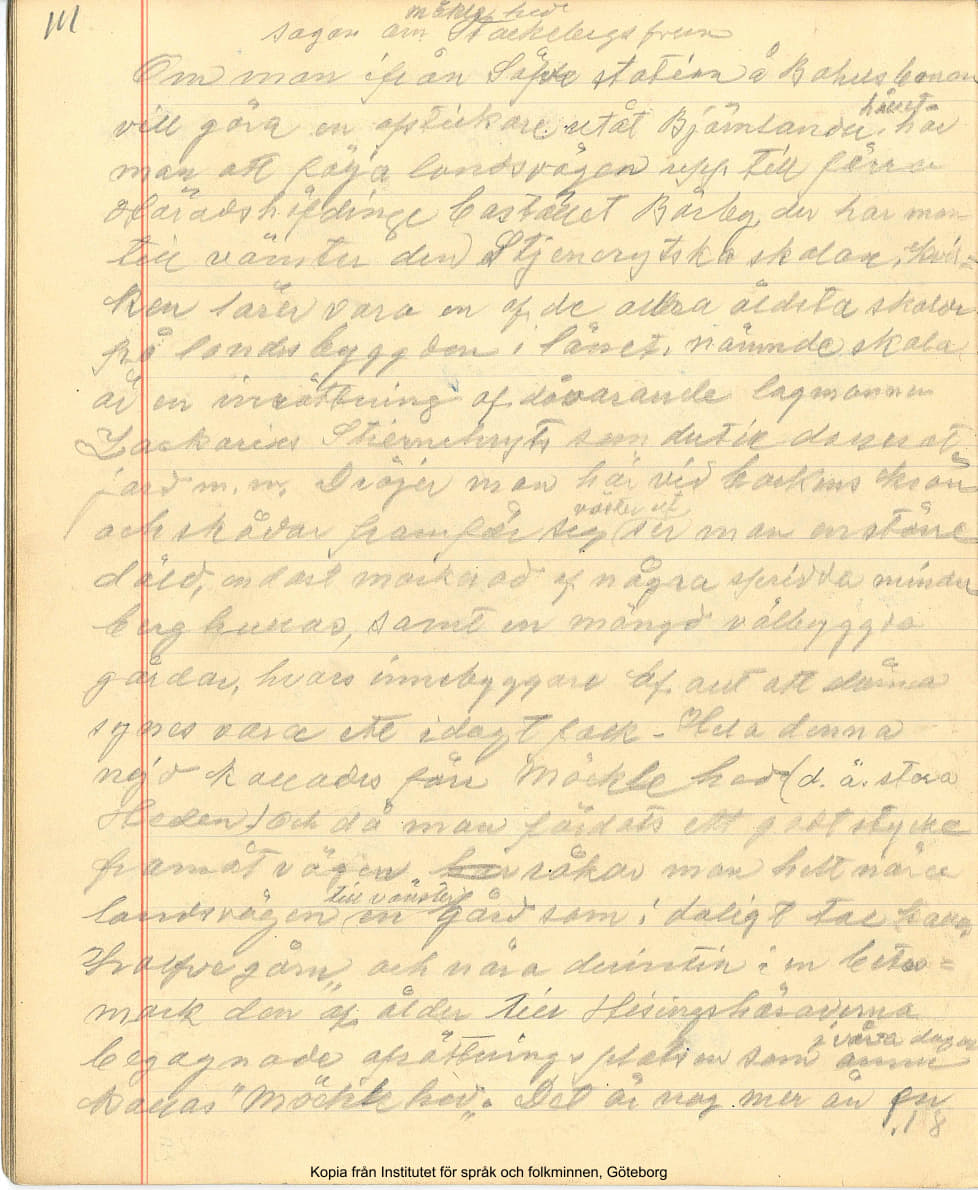 111
Möklehed
Sagan om Stackebergsfrun
Om man ifrån Säfve station å Bohusbanan
vill göra en afstickare utåt Björnlandahållet har
man att följa landsvägen upp till förra
Häradshöfdinge bostället Bärby, der har man
till vänster den Stjencrytska skolan, hvil=
ken lärer vara en af de allra äldsta skolor
på landsbyggden i länet, nämnde skola
är en inrättning af dåvarande lagmannen
Zackarias Stiernchryts som dertill donerat
jord m. m. Dröjer man här vid backens krön
och skådar framför sig väster ut ser man en större
däld, endast markerad af några spridda mindre
bergkullar, samt en mängd välbyggda
gårdar, hvars innebyggare af allt att döma
synes vara ett idogt folk - Hela denna
nejd kallades förr Möckle hed (d. ä. stora
Heden) Och då man färdats ett godt stycke
framåt vägen råkar man helt nära
landsvägen till vänster en gård som i dagligt tal kallas
och nära derintill i en betes=
mark den af ålder till Hisingshäraderna
begagnade afrättningsplatsen som i våra dagar
kallas "Möckle hed". Det är nog mer än en
18
Kopia från Institutet för språk och folkminnen, Göteborg